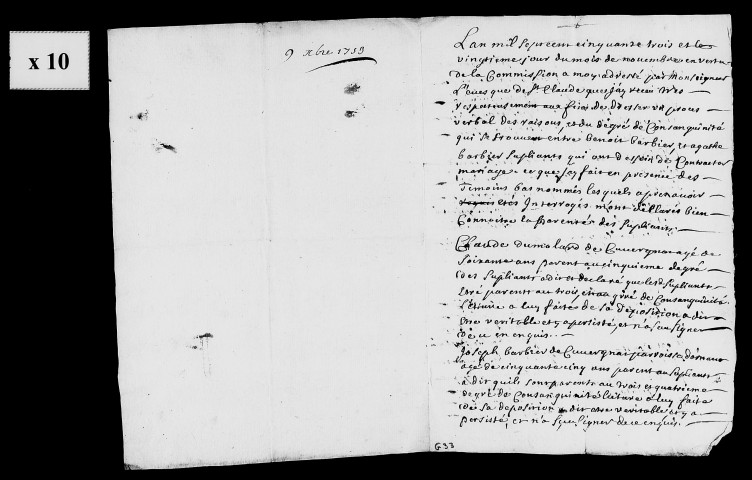 x 10
9 xbre 1753
Lan mil sept cent cinquante trois et le
vingtieme jour du mois de novembre en vertu
de la Commission a moy adressé par Monseigneur
L'evesque de St Claude que jay receu
respectueusement aux fins de dresser un proces
verbal des raisons, et du degré de Consanguinité
qui se trouvent entre Benoit barbier, et agathe
barbier supliants qui ont dessein de Contracter
mariage ce que jay fait en presence des
Temoins bas nommés lesquels apres avoir
estés Interrogés m'ont déclarés bien
Connoitre la parentés des supliants.
Claude dumolard de Cuvergnat agé de
soixante ans parent au cinquieme degré
des supliants a dit et declaré que lesd supliants
sont parents au trois, et degré de Consanguinité
Lecture a luy faites de sa déposition a dit
etre veritable et y a persisté, et n'a sceu signer
de ce enquis.
Joseph barbier de Cuvergnat parroisse
agé de cinquante cinq ans parent au supliants
a dit quils sont parents au trois et quatrieme
degré de Consanguinité lecture a luy faite
de sa deposition a dit etre veritable et y a
persisté, et n'a sceu signer de ce enquis.
G 33